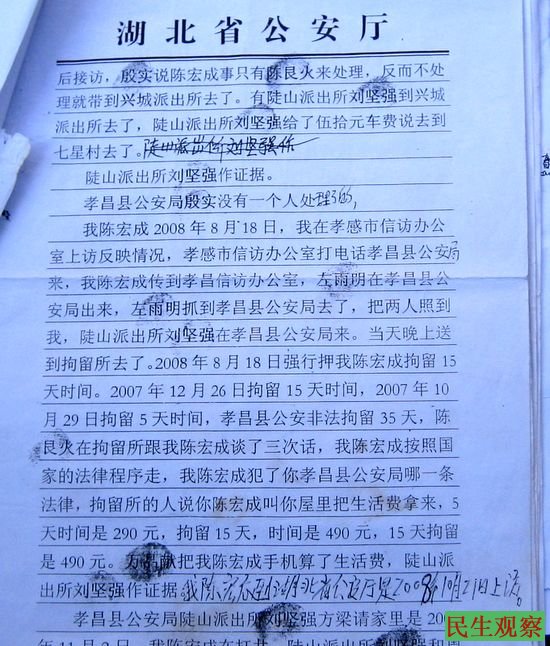 湖北省公安厅
后接访，殷实说陈宏成事只有陈艮火来处理，反而不处
理就带到兴城派出所去了。有陡山派出所刘坚强到兴城
派出所去了，陡山派出所刘坚强给了伍拾元车费说去到
七星村去了。陡山派出所刘坚强作
陡山派出所刘坚强作证据。
孝昌县公安局殷实没有一个人处理的，
我陈宏成 2008 年 8 月 18 日，我在孝感市信访办公
室上访反映情况，孝感市信访办公室打电话孝昌县公安局
来，我陈宏成传到孝昌信访办公室，左雨明在孝昌县公
安局出来，左雨明抓到孝昌县公安局去了，把两人照到
我，陡山派出所刘坚强在孝昌县公安局来。当天晚上送
到拘留所去了。2008 年 8 月 18 日强行押我陈宏成拘留 15
天时间。2007 年 12 月 26 日拘留 15 天时间，2007 年 10
月 29 日拘留 5 天时间，孝昌县公安非法拘留 35 天，陈
艮火在拘留所跟我陈宏成谈了三次话，我陈宏成按照国
家的法律程序走，我陈宏成犯了你孝昌县公安局哪一条
法律，拘留所的人说你陈宏成叫你屋里把生活费拿来，5
天时间是 290 元，拘留 15 天，时间是 490 元，15 天拘留
是 490 元。方易献把我陈宏成手机算了生活费，陡山派
出所刘坚强作证据。我陈宏成在湖北省公安厅是2008年10月21日上访。
孝昌县公安局陡山派出所刘坚强方梁请家里是 200
年 11 月 2 日，我陈宏成在打井，陡山派出所刘坚强和国
民生观察